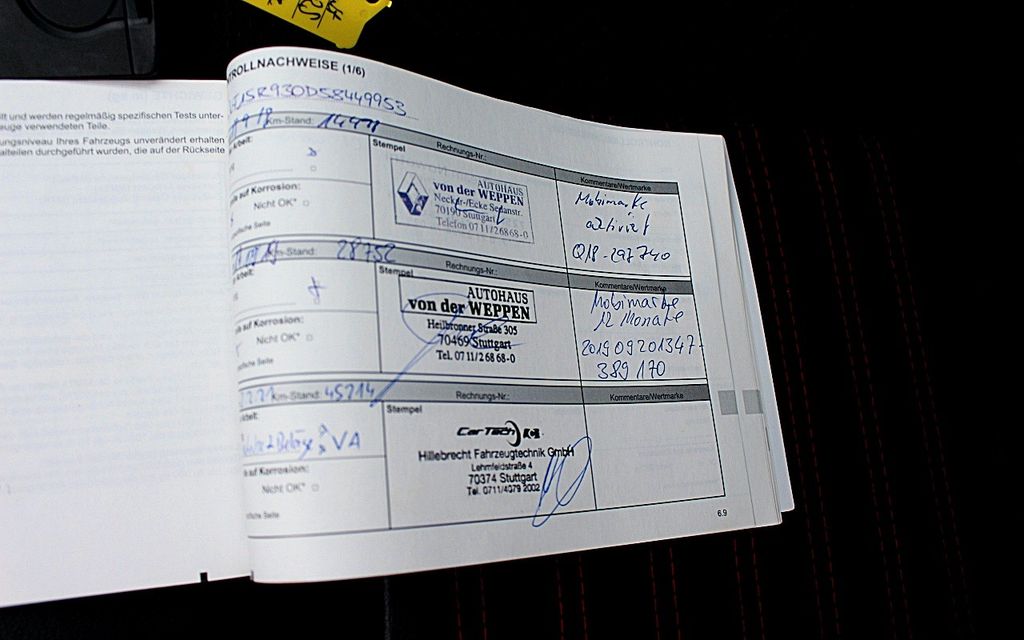 llt und werden regelmäßig spezifischen Tests unter-
zeuge verwendeten Teile.
ungsniveau Ihres Fahrzeugs unverändert erhalten
alteilen durchgeführt wurden, die auf der Rückseite
TROLLNACHWEISE (1/6)
Km-Stand: 14471
Stempel
Rechnungs-Nr.:
Kommentare/Wertmarke
AUTOHAUS
von der WEPPEN
Neckar-/Ecke Sedanstr.
70190 Stuttgart
Telefon 0711/26868-0
Mobimarke
aktiviert
Q18-297740
auf Korrosion:
Nicht OK*
Km-Stand: 28752
Stempel
Rechnungs-Nr.:
Kommentare/Wertmarke
AUTOHAUS
von der WEPPEN
Heilbronner Straße 305
70469 Stuttgart
Tel. 0711/2 68 68-0
Mobimarke
12 Monate
201909201347-
389170
auf Korrosion:
Nicht OK*
Km-Stand: 45214
Stempel
Rechnungs-Nr.:
Kommentare/Wertmarke
VA
CarTech
Hillebrecht Fahrzeugtechnik GmbH
Lehmfeldstraße 4
70374 Stuttgart
Tel. 0711/4079 2002
auf Korrosion:
Nicht OK*
6.9